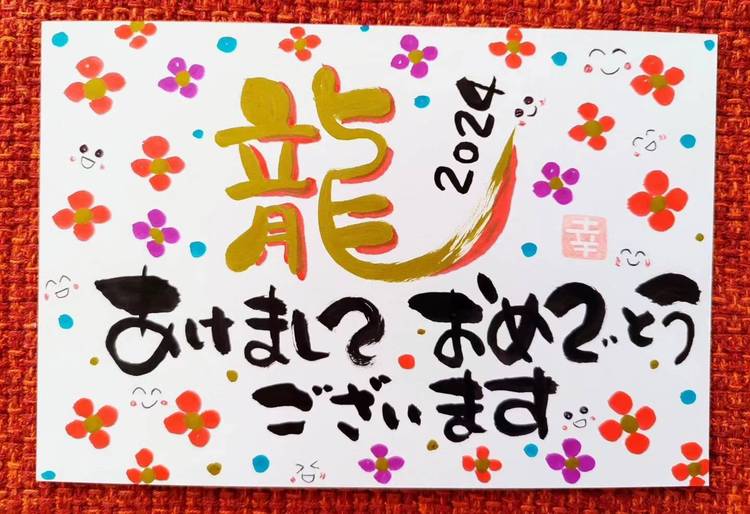 龍
2024
幸
あけまして おめでとう
ございます